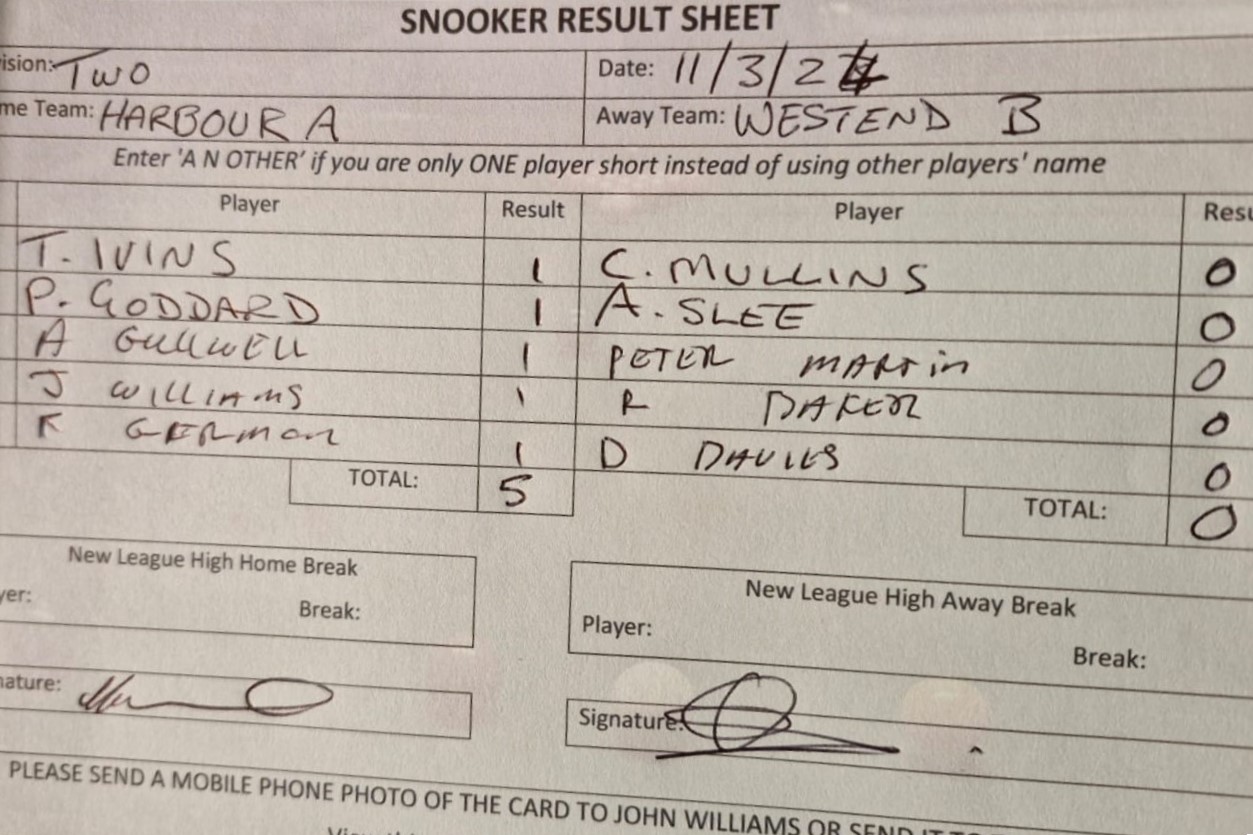 SNOOKER RESULT SHEET
ision: TWO Date: 11/3/24
me Team: HARBOUR A Away Team: WESTEND B
Enter 'A N OTHER' if you are only ONE player short instead of using other players' name
Player Result Player Resu
T. IVINS 1 C. MULLINS 0
P. GODDARD 1 A. SLEE 0
A GULLWELL 1 PETER MARTIN 0
J WILLIAMS 1 R BAKER 0
K GERMAN 1 D DAVIES 0
TOTAL: 5 TOTAL: 0
New League High Home Break New League High Away Break
yer: Break: Player: Break:
nature: Signature:
PLEASE SEND A MOBILE PHONE PHOTO OF THE CARD TO JOHN WILLIAMS OR SEND IT TO